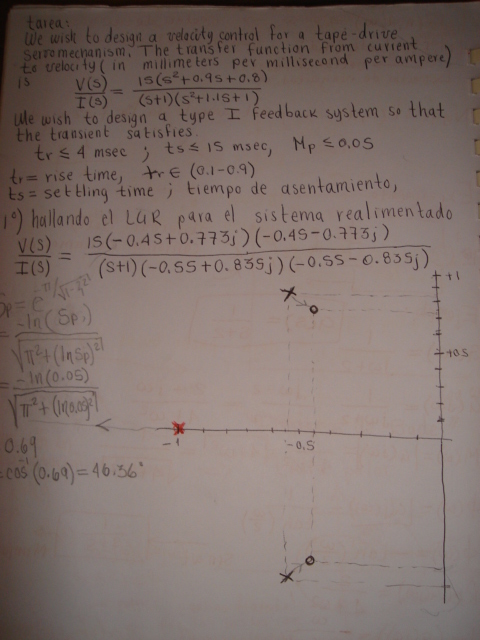 tarea:
We wish to design a velocity control for a tape-drive
servomechanism. The transfer function from current
to velocity (in millimeters per millisecond per ampere)
is V(s)/I(s) = 15(s²+0.9s+0.8)/(s+1)(s²+1.1s+1)
We wish to design a type I feedback system so that
the transient satisfies.
tr ≤ 4 msec ; ts ≤ 15 msec, Mp ≤ 0.05
tr = rise time, tr ∈ (0.1-0.9)
ts = settling time ; tiempo de asentamiento,
1°) hallando el LGR para el sistema realimentado
V(s)/I(s) = 15(-0.45+0.773j)(-0.45-0.773j)/(s+1)(-0.55+0.835j)(-0.55-0.835j)
+1
Sp = e^-π/√1-ξ²
= -ln(Sp)/√π²+(lnSp)²
+0.5
= -ln(0.05)/√π²+(ln0.05)²
-1
-0.5
0.69
= cos⁻¹(0.69) = 46.36°